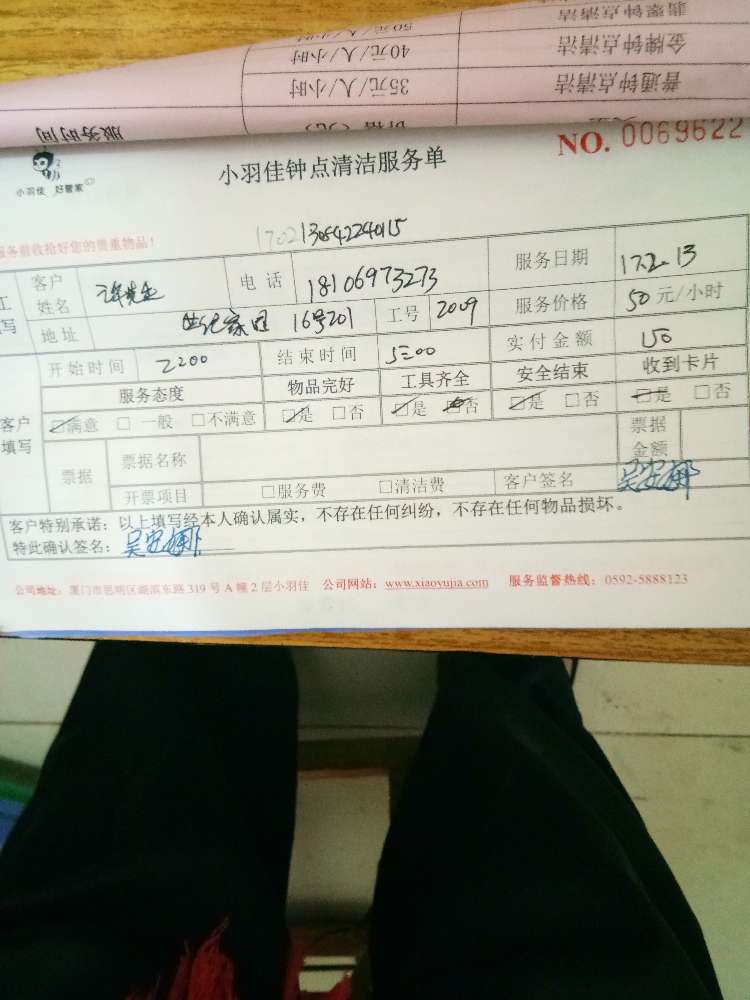 翡翠钟点清洁 50元/人/小时
金牌钟点清洁 40元/人/小时
普通钟点清洁 35元/人/小时
价格(元) 服务时间
小羽佳 好管家
小羽佳钟点清洁服务单
NO. 0069622
服务前收拾好您的贵重物品!
客户姓名 许先生 电话 18106973273 服务日期 17.2.13
地址 世纪家园 16号201 工号 2009 服务价格 50元/小时
开始时间 2:00 结束时间 5:00 实付金额 150
服务态度 物品完好 工具齐全 安全结束 收到卡片
客户填写 ☑满意 □一般 □不满意 ☑是 □否 ☑是 □否 ☑是 □否 ☑是 □否
票据 票据名称 票据金额
开票项目 □服务费 □清洁费 客户签名
客户特别承诺:以上填写经本人确认属实,不存在任何纠纷,不存在任何物品损坏。
特此确认签名:
公司地址:厦门市思明区湖滨东路 319 号 A 幢 2 层小羽佳 公司网站:www.xiaoyujia.com 服务监督热线:0592-5888123